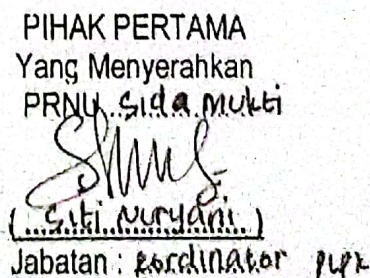 PIHAK PERTAMA
Yang Menyerahkan
PRNU Sida mukti
( Siti Nuryani )
Jabatan : kordinator